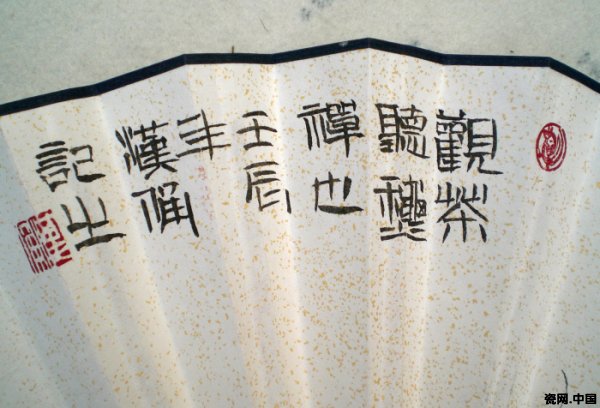 觀茶
聽
禪也
壬辰
年
漢俑
記之
瓷网.中国